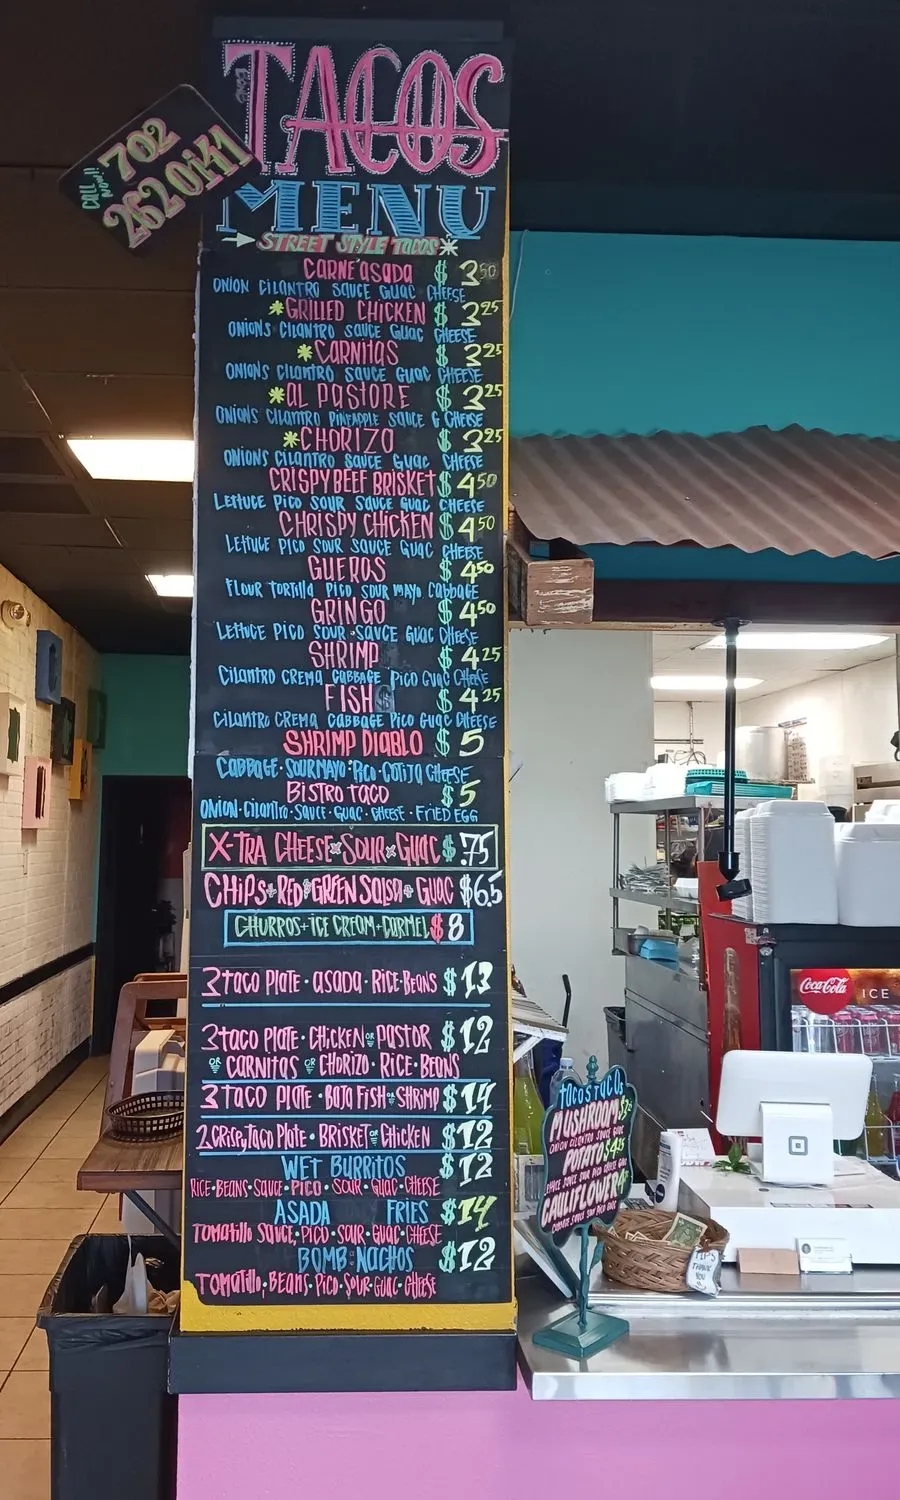 TACOS
MENU
CALL NOW!! 702
262 0IK1
STREET STYLE TACOS
CARNE ASADA $ 3 50
ONION CILANTRO SAUCE GUAC CHEESE
*GRILLED CHICKEN $ 3 25
ONIONS CILANTRO SAUCE GUAC CHEESE
*CARNITAS $ 3 25
ONIONS CILANTRO SAUCE GUAC CHEESE
*AL PASTORE $ 3 25
ONIONS CILANTRO PINEAPPLE SAUCE G CHEESE
*CHORIZO $ 3 25
ONIONS CILANTRO SAUCE GUAC CHEESE
CRISPY BEEF BRISKET $ 4 50
LETTUCE PICO SOUR SAUCE GUAC CHEESE
CHRISPY CHICKEN $ 4 50
LETTUCE PICO SOUR SAUCE GUAC CHEESE
GUEROS $ 4 50
FLOUR TORTILLA PICO SOUR MAYO CABBAGE
GRINGO $ 4 50
LETTUCE PICO SOUR SAUCE GUAC CHEESE
SHRIMP $ 4 25
CILANTRO CREMA CABBAGE PICO GUAC CHEESE
FISH $ 4 25
CILANTRO CREMA CABBAGE PICO GUAC CHEESE
SHRIMP DIABLO $ 5
CABBAGE·SOUR MAYO·PICO·COTIJA CHEESE
BISTRO TACO $ 5
ONION·CILANTRO·SAUCE·GUAC·CHEESE·FRIED EGG
X-TRA CHEESE×SOUR×GUAC $ .75
CHIPS+RED+GREEN SALSA+GUAC $6.5
CHURROS+ICE CREAM+CARMEL $ 8
3 TACO PLATE·ASADA·RICE·BEANS $ 13
3 TACO PLATE·CHICKEN OR PASTOR $ 12
OR CARNITAS OR CHORIZO·RICE·BEANS
3 TACO PLATE·BAJA FISH OR SHRIMP $ 14
2 CRISPY TACO PLATE·BRISKET OR CHICKEN $ 12
WET BURRITOS $ 12
RICE·BEANS·SAUCE·PICO·SOUR·GUAC·CHEESE
ASADA FRIES $ 14
TOMATILLO SAUCE, PICO·SOUR·GUAC·CHEESE
BOMB NACHOS $ 12
TOMATILLO, BEANS, PICO·SOUR·GUAC·CHEESE
Coca-Cola
ICE
TACOS TACOS
MUSHROOM
ONION CILANTRO SAUCE GUAC
POTATO $4.25
CAULIFLOWER
TIPS
THANK
YOU